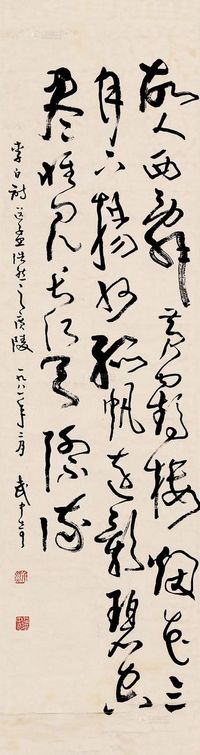 故人西辭黄鶴樓烟花三
月下揚州孤帆遠影碧空
盡惟見長江天際流
李白詩送孟浩然之廣陵 一九八一年三月 武中奇